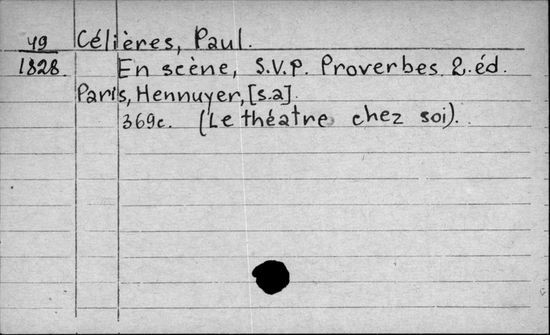 49 Célières, Paul.
1828. En scène, S.V.P. Proverbes 2.éd.
Paris, Hennuyer, [s.a].
369c. (Le théatre chez soi).